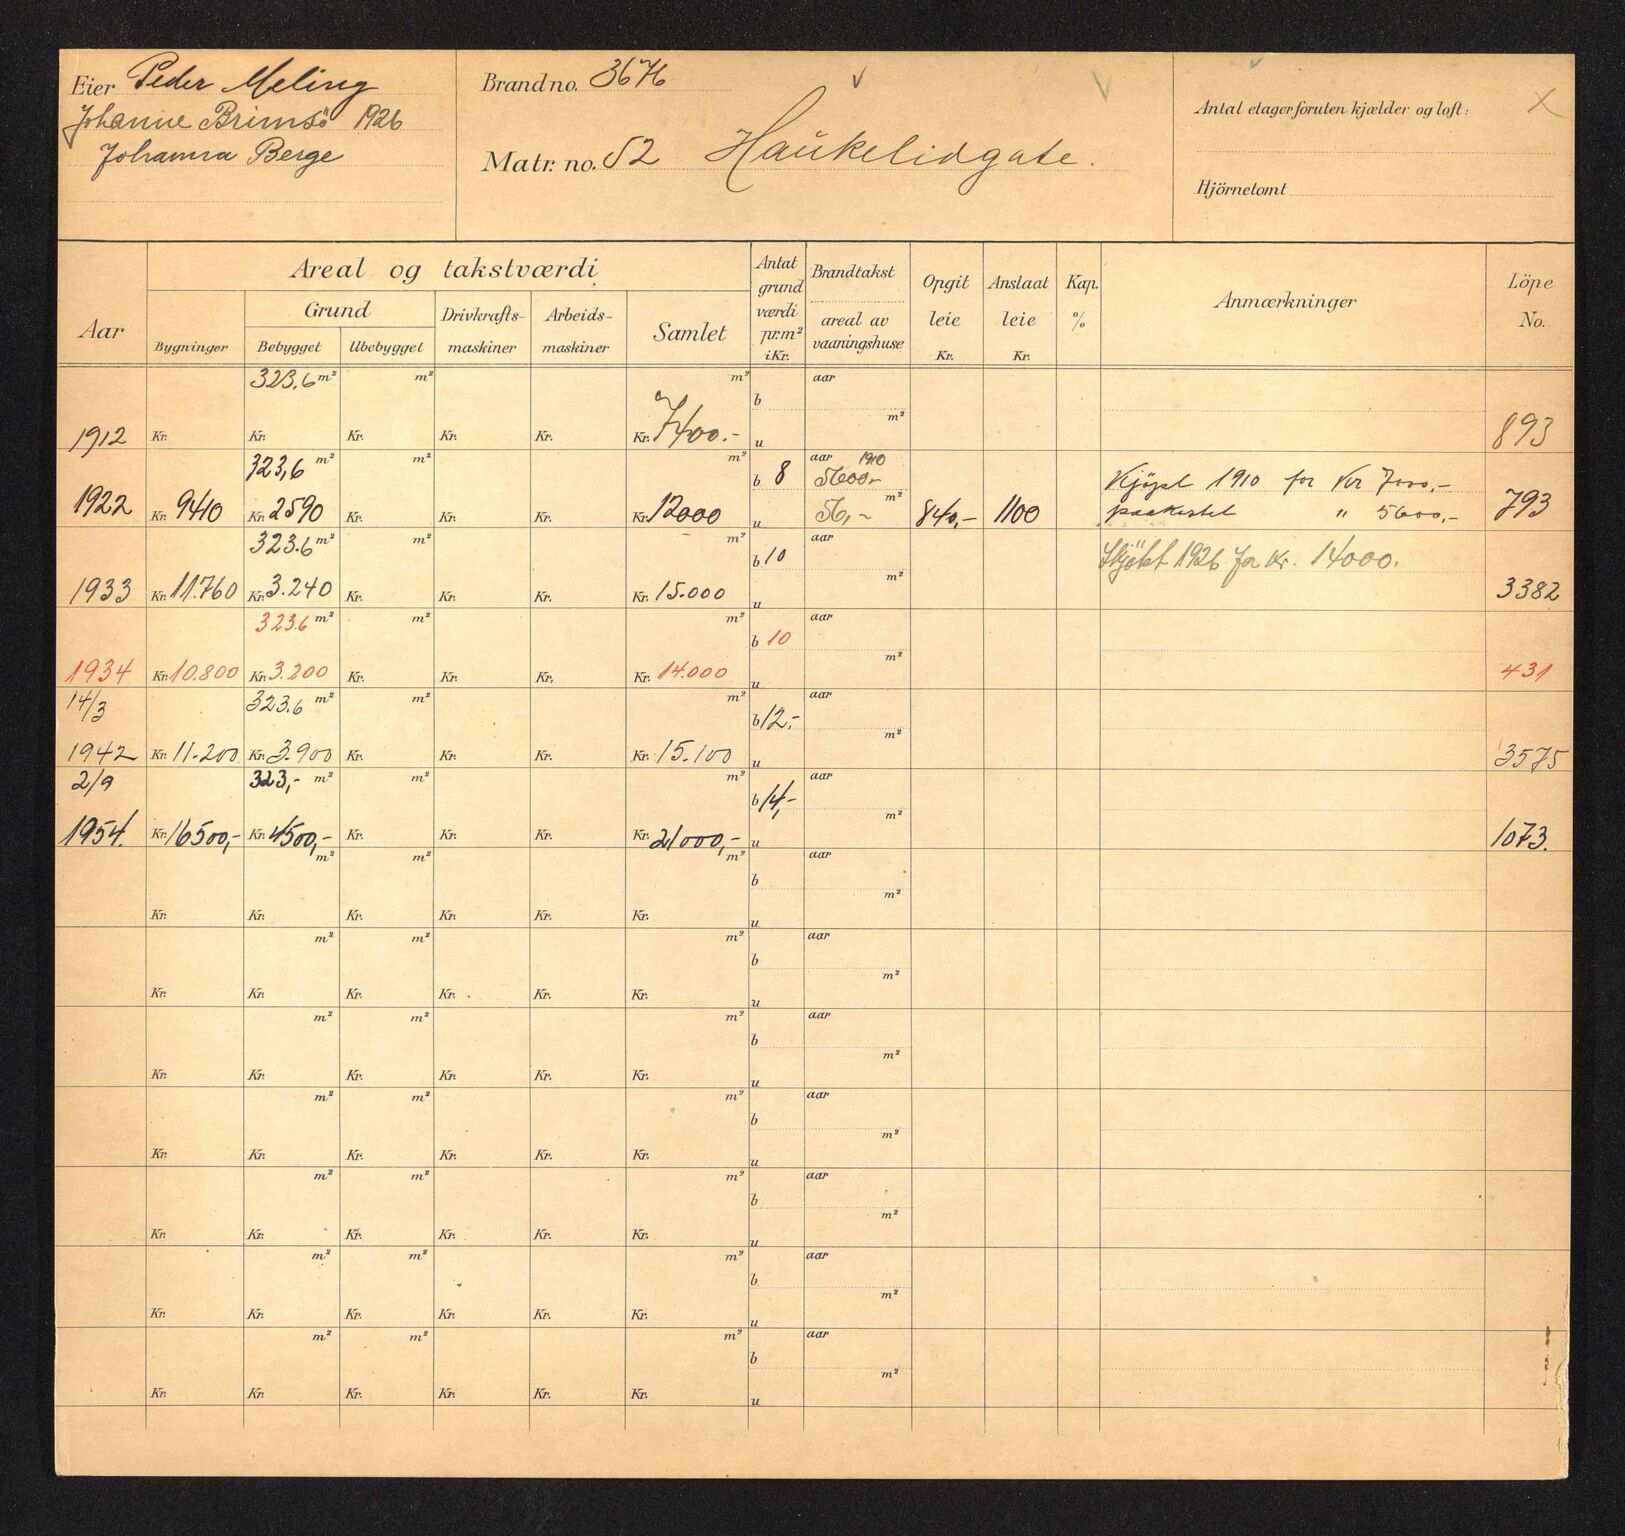 Eier Peder Meling
Johanne Brimsö 1926
Johanna Berge
Brand no. 3676
Matr. no. 52 Haukelidgate.
Antal etager foruten kjælder og loft:
Hjörnetomt
Aar
Areal og takstværdi
Grund
Bygninger
Bebygget
Ubebygget
Drivkrafts-maskiner
Arbeids-maskiner
Samlet
Antat grund værdi pr. m² i Kr.
Brandtakst
areal av vaaningshuse
Opgit leie Kr.
Anslaat leie Kr.
Kap. %
Anmærkninger
Löpe No.
323.6 m² m² m² aar
b m²
1912 Kr. Kr. Kr. Kr. Kr. Kr. 7400.- u 893
323,6 m² m² m² b 8 aar 1910 5600,- Kjöpt 1910 for Kr 7000,-
1922 Kr. 9410 Kr. 2590 Kr. Kr. Kr. Kr. 12000 u 56,- m² 840,- 1100 paakostet " 5600,- 793
323.6 m² m² m² b 10 aar Skjötet 1926 for kr. 14000.
1933 Kr. 11.760 Kr. 3.240 Kr. Kr. Kr. Kr. 15.000 u m² 3382
323.6 m² m² m² b 10 aar
1934 Kr. 10.800 Kr. 3.200 Kr. Kr. Kr. Kr. 14.000 u m² 431
14/3 323.6 m² m² m² b 12.- aar
1942 Kr. 11.200 Kr. 3.900 Kr. Kr. Kr. Kr. 15.100 u m² 3575
2/9 323,- m² m² m² b 14,- aar
1954. Kr. 16500,- Kr. 4500,- Kr. Kr. Kr. Kr. 21000,- u m² 1073.
m² m² m² b aar
Kr. Kr. Kr. Kr. Kr. Kr. m²
m² m² m² b aar
Kr. Kr. Kr. Kr. Kr. Kr. u m²
m² m² m² b aar
Kr. Kr. Kr. Kr. Kr. Kr. u m²
m² m² m² b aar
Kr. Kr. Kr. Kr. Kr. Kr. u m²
m² m² m² b aar
Kr. Kr. Kr. Kr. Kr. Kr. u m²
m² m² m² b aar
Kr. Kr. Kr. Kr. Kr. Kr. u m²
m² m² m² b aar
Kr. Kr. Kr. Kr. Kr. Kr. u m²